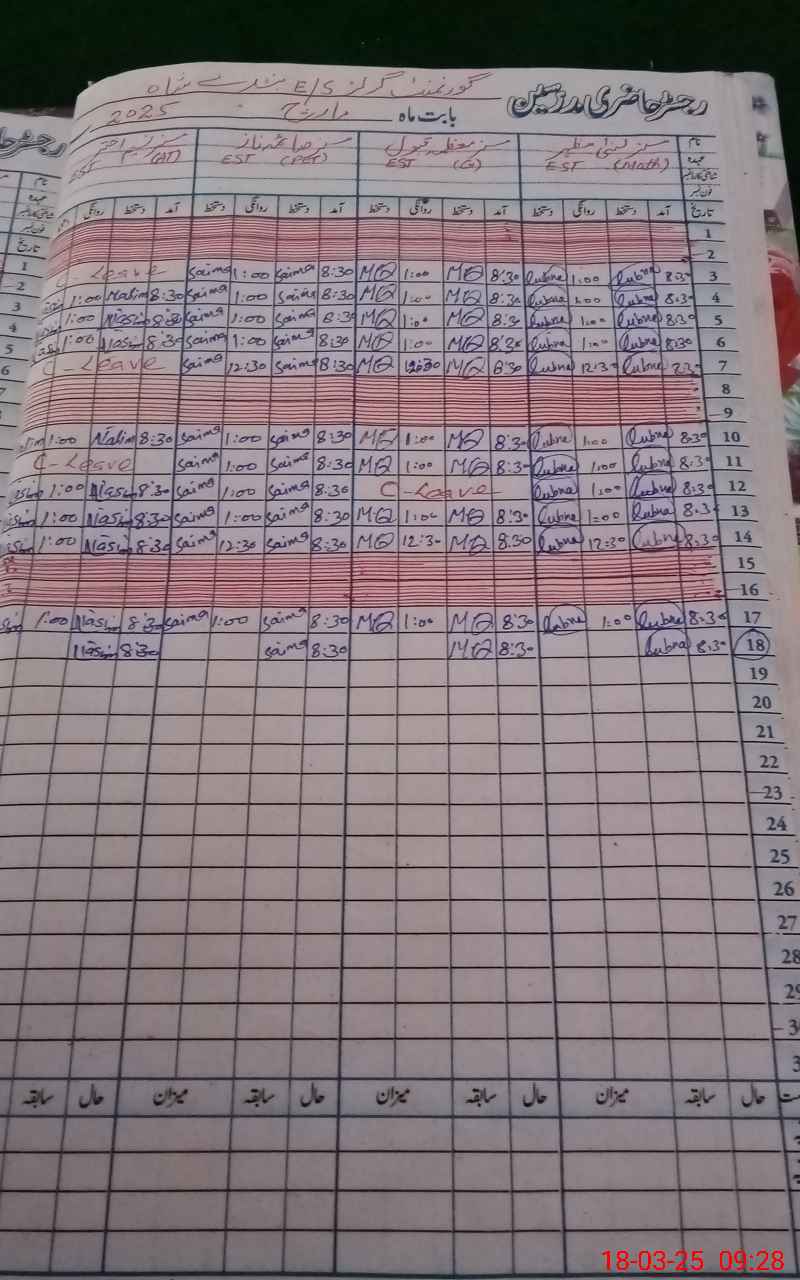 گورنمنٹ گرلز E/S بندے شاہ
رجسٹر حاضری مدرسین بابت ماہ مارچ 2025
نام مسز لبنیٰ مظہر مسز صائمہ ناز
عہدہ EST (Math) EST EST EST (AT)
شناختی کارڈ نمبر
فون نمبر
تاریخ آمد دستخط روانگی دستخط آمد دستخط روانگی دستخط آمد دستخط روانگی دستخط آمد دستخط روانگی
1
2
3 8:30 Lubna 1:00 Lubna 8:30 MQ 1:00 MQ 8:30 Saima 1:00 Saima C-Leave
4 8:30 Lubna 1:00 Lubna 8:30 MQ 1:00 MQ 8:30 Saima 1:00 Saima 8:30 1:00
5 8:30 Lubna 1:00 Lubna 8:30 MQ 1:00 MQ 8:30 Saima 1:00 Saima 8:30 Nasim 1:00
6 8:30 Lubna 1:00 Lubna 8:30 MQ 1:00 MQ 8:30 Saima 1:00 Saima 8:30 Nasim 1:00
7 8:30 Lubna 12:30 Lubna 8:30 MQ 12:30 MQ 8:30 Saima 12:30 Saima C-Leave
8
9
10 8:30 Lubna 1:00 Lubna 8:30 MQ 1:00 MQ 8:30 Saima 1:00 Saima 8:30 1:00
11 8:30 Lubna 1:00 Lubna 8:30 MQ 1:00 MQ 8:30 Saima 1:00 Saima C-Leave
12 8:30 Lubna 1:00 Lubna C-Leave 8:30 Saima 1:00 Saima 8:30 Nasim 1:00
13 8:30 Lubna 1:00 Lubna 8:30 MQ 1:00 MQ 8:30 Saima 1:00 Saima 8:30 Nasim 1:00
14 8:30 Lubna 12:30 Lubna 8:30 MQ 12:30 MQ 8:30 Saima 12:30 Saima 8:30 Nasim 1:00
15
16
17 8:30 Lubna 1:00 Lubna 8:30 MQ 1:00 MQ 8:30 Saima 1:00 Saima 8:30 Nasim 1:00
18 8:30 Lubna 8:30 MQ 8:30 Saima 8:30 Nasim
19
20
21
22
23
24
25
26
27
28
29
حال سابقہ میزان حال سابقہ میزان حال سابقہ میزان حال سابقہ
18-03-25 09:28